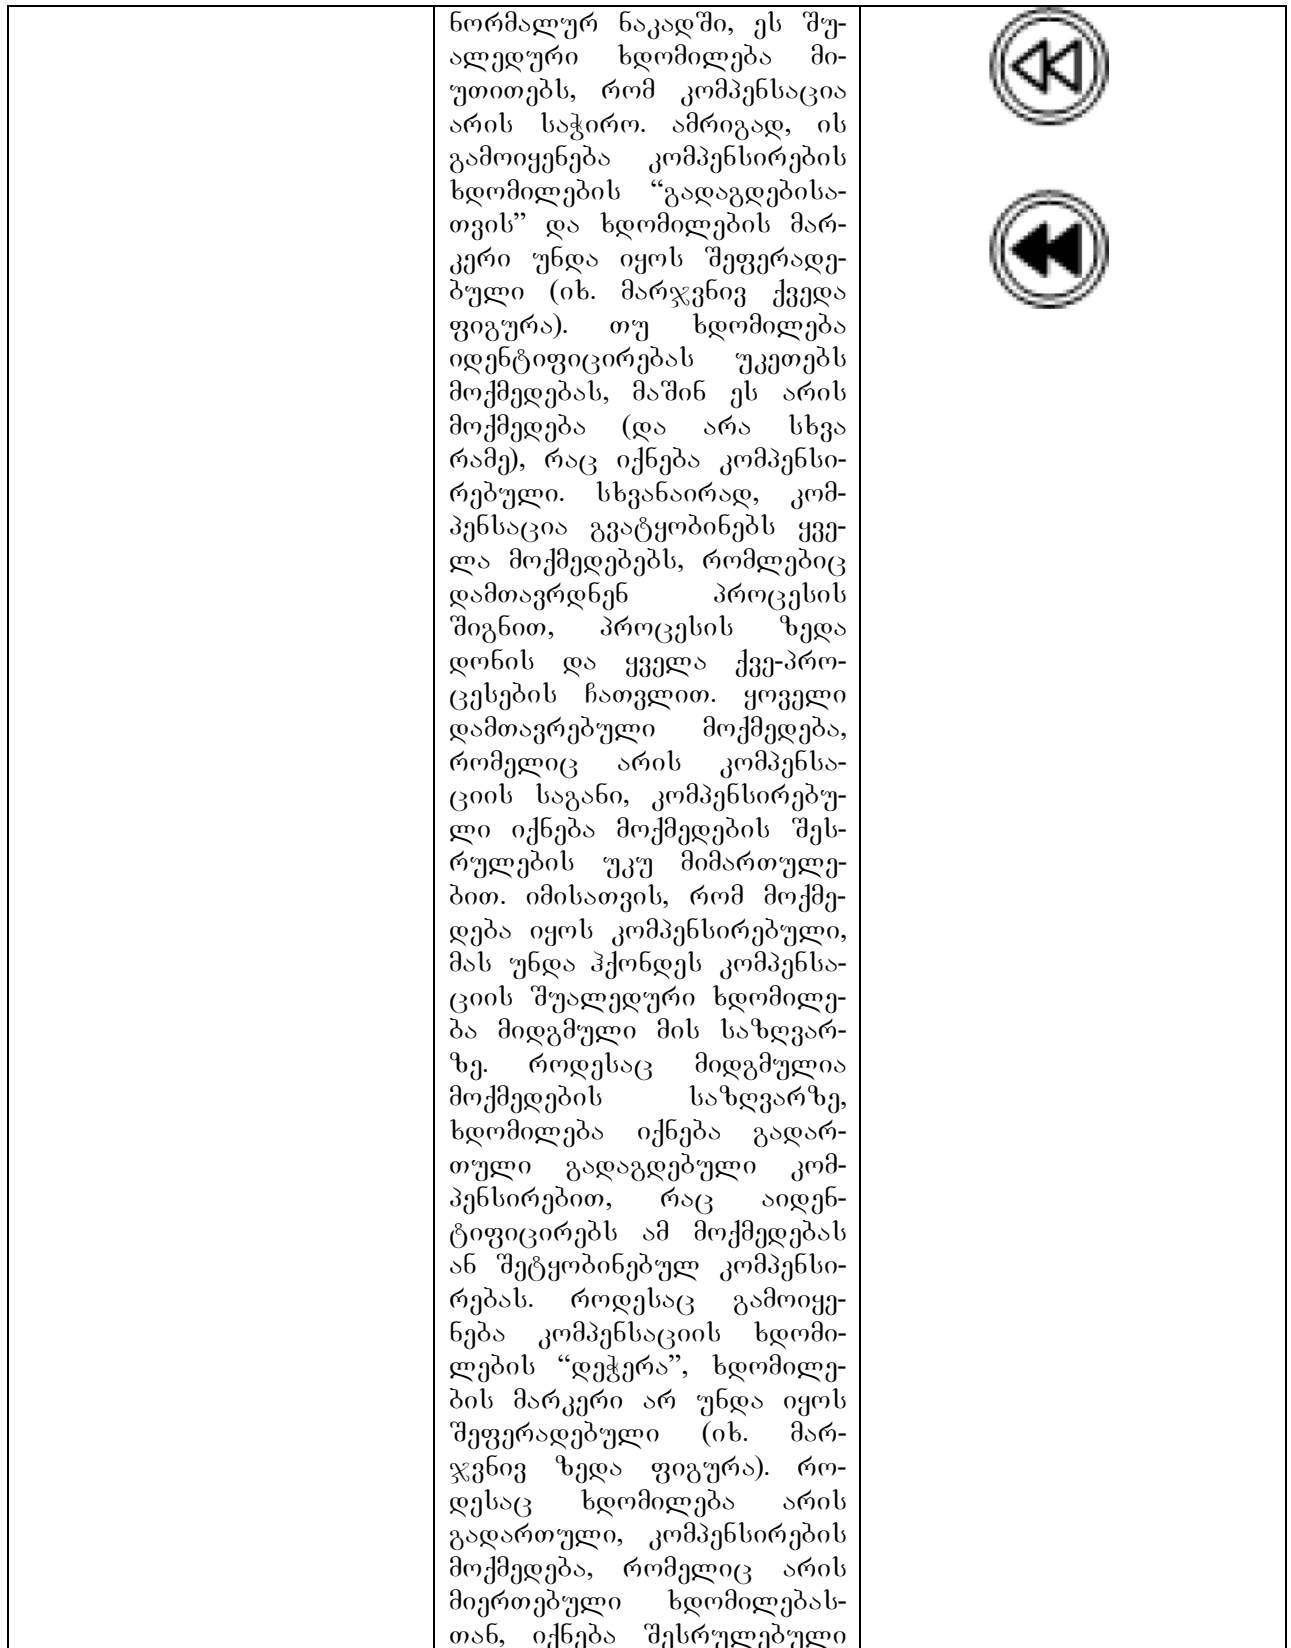 ნორმალურ ნაკადში, ეს შუ-
ალედური ხდომილება მი-
უთითებს, რომ კომპენსაცია
არის საჭირო. ამრიგად, ის
გამოიყენება კომპენსირების
ხდომილების “გადაგდებისა-
თვის” და ხდომილების მარ-
კერი უნდა იყოს შეფერადე-
ბული (იხ. მარჯვნივ ქვედა
ფიგურა). თუ ხდომილება
იდენტიფიცირებას უკეთებს
მოქმედებას, მაშინ ეს არის
მოქმედება (და არა სხვა
რამე), რაც იქნება კომპენსი-
რებული. სხვანაირად, კომ-
პენსაცია გვატყობინებს ყვე-
ლა მოქმედებებს, რომლებიც
დამთავრდნენ პროცესის
შიგნით, პროცესის ზედა
დონის და ყველა ქვე-პრო-
ცესების ჩათვლით. ყოველი
დამთავრებული მოქმედება,
რომელიც არის კომპენსა-
ციის საგანი, კომპენსირებუ-
ლი იქნება მოქმედების შეს-
რულების უკუ მიმართულე-
ბით. იმისათვის, რომ მოქმე-
დება იყოს კომპენსირებული,
მას უნდა ჰქონდეს კომპენსა-
ციის შუალედური ხდომილე-
ბა მიდგმული მის საზღვარ-
ზე. როდესაც მიდგმულია
მოქმედების საზღვარზე,
ხდომილება იქნება გადარ-
თული გადაგდებული კომ-
პენსირებით, რაც აიდენ-
ტიფიცირებს ამ მოქმედებას
ან შეტყობინებულ კომპენსი-
რებას. როდესაც გამოიყე-
ნება კომპენსაციის ხდომი-
ლების “დეჭერა”, ხდომილე-
ბის მარკერი არ უნდა იყოს
შეფერადებული (იხ. მარ-
ჯვნივ ზედა ფიგურა). რო-
დესაც ხდომილება არის
გადართული, კომპენსირების
მოქმედება, რომელიც არის
მიერთებული ხდომილებას-
თან, იქნება შესრულებული